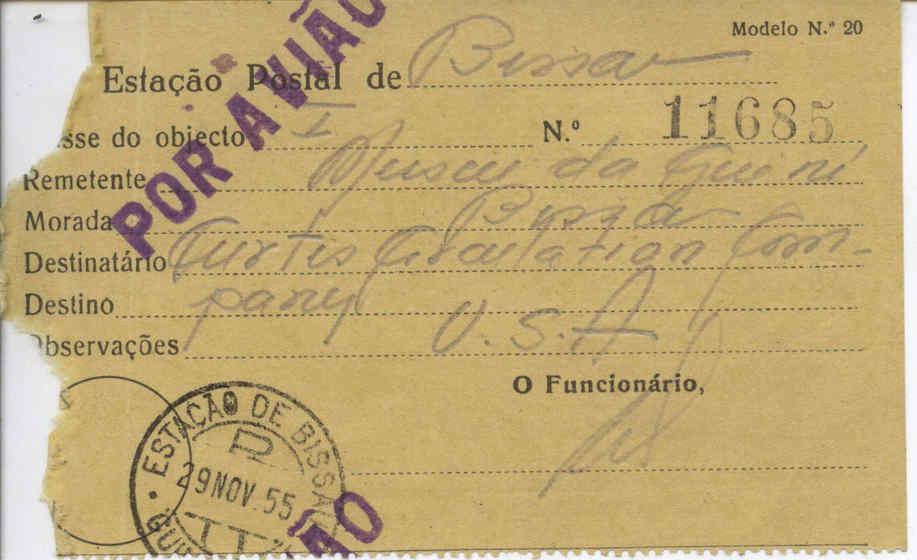 Modelo N.º 20
POR AVIÃO
Estação Postal de Bissau
sse do objecto I N.º 11685
Remetente Museu da Guiné
Morada Bissau
Destinatário Curtis Circulation Com-
Destino pany
Observações U.S.A
O Funcionário,
ESTAÇÃO DE BISSAU
29 NOV. 55
GUI
ÃO